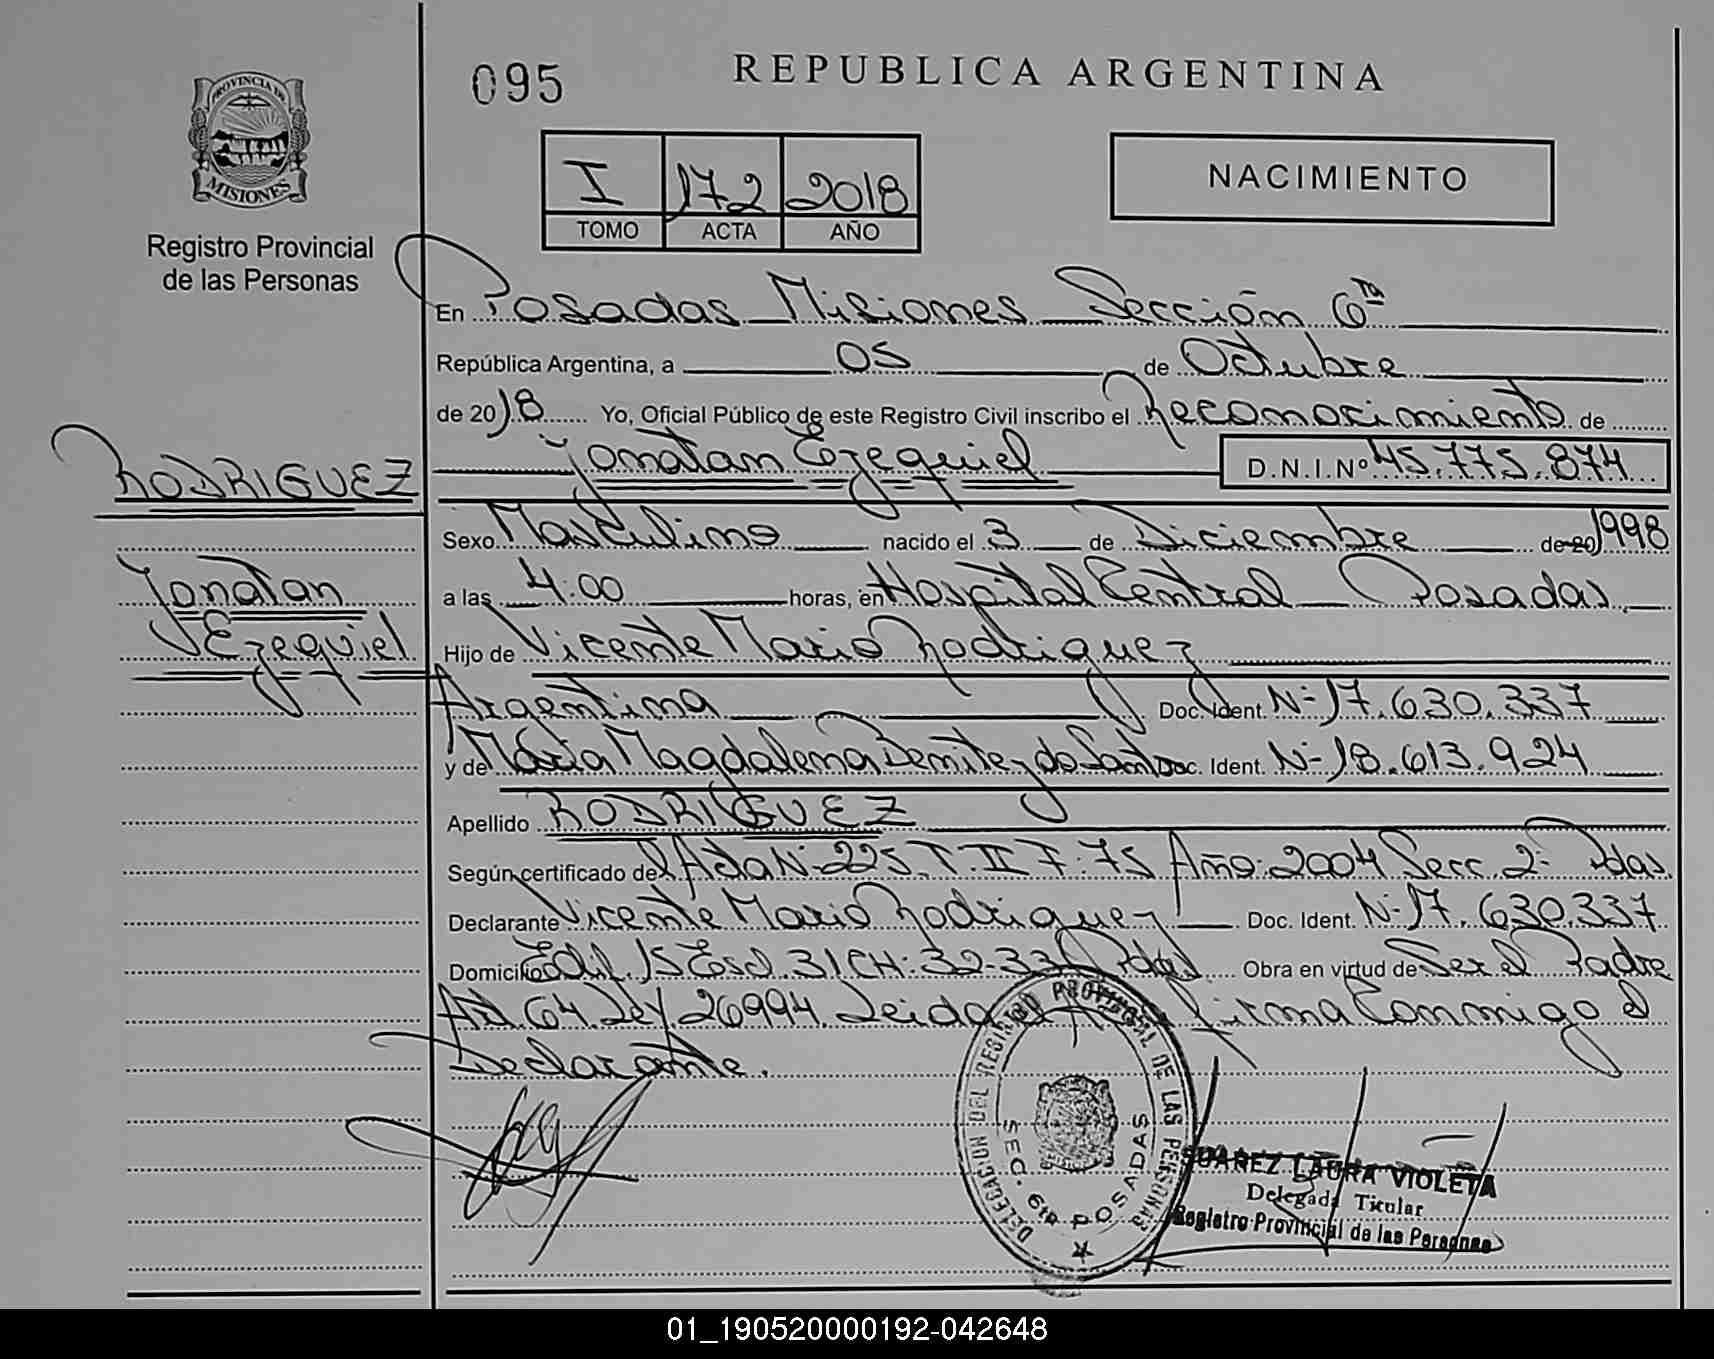 095
REPUBLICA ARGENTINA
PROVINCIA DE
MISIONES
Registro Provincial
de las Personas
I 172 2018
TOMO ACTA AÑO
NACIMIENTO
En Posadas Misiones Sección 6ta
República Argentina, a 05 de Octubre
de 2018 Yo, Oficial Público de este Registro Civil inscribo el Reconocimiento de
Jonatan Ezequiel D.N.I.Nº 45.775.874
RODRIGUEZ
Jonatan
Ezequiel
Sexo Masculino nacido el 3 de Diciembre de 20 1998
a las 4:00 horas, en Hospital Central Posadas
Hijo de Vicente Mario Rodriguez
Argentina Doc. Ident. Nº 17.630.337
y de María Magdalena Benitez do Santo Doc. Ident. Nº 18.613.924
Apellido RODRIGUEZ
Según certificado del Acta Nº 225 T. II F: 75 Año: 2004 Secc. 2º Pdas.
Declarante Vicente Mario Rodriguez Doc. Ident. Nº 17.630.337
Domicilio Edif. 15 Esc. 31 CH: 32-33 Pdas Obra en virtud de Ser el Padre
Art. 64 Ley 26994. Leida firma Conmigo el
Declarante.
DELEGACION DEL REGISTRO PROVINCIAL DE LAS PERSONAS
SEC. 6ta POSADAS
SUAREZ LAURA VIOLETA
Delegada Titular
Registro Provincial de las Personas
01_190520000192-042648